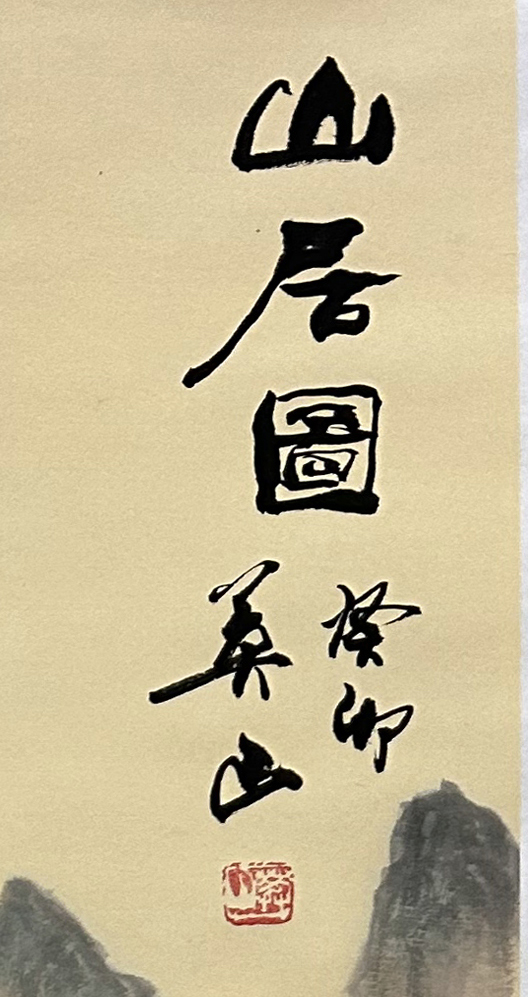 山居圖
癸卯
山